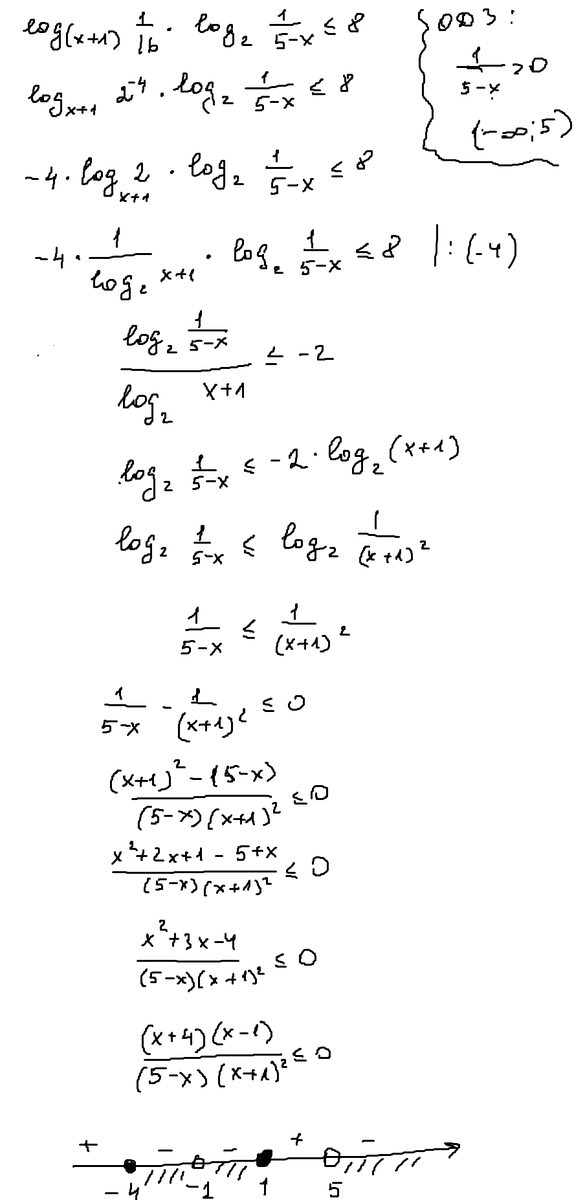 log_(x+1) 1/16 · log_2 1/(5-x) ≤ 8
ОДЗ:
1/(5-x) > 0
(-∞; 5)
log_{x+1} 2^{-4} · log_2 1/(5-x) ≤ 8
-4 · log_{x+1} 2 · log_2 1/(5-x) ≤ 8
-4 · 1/(log_2 x+1) · log_2 1/(5-x) ≤ 8 |: (-4)
(log_2 1/(5-x))/(log_2 x+1) ≤ -2
log_2 1/(5-x) ≤ -2 · log_2 (x+1)
log_2 1/(5-x) ≤ log_2 1/(x+1)^2
1/(5-x) ≤ 1/(x+1)^2
1/(5-x) - 1/(x+1)^2 ≤ 0
((x+1)^2 - (5-x))/((5-x)(x+1)^2) ≤ 0
(x^2+2x+1-5+x)/((5-x)(x+1)^2) ≤ 0
(x^2+3x-4)/((5-x)(x+1)^2) ≤ 0
((x+4)(x-1))/((5-x)(x+1)^2) ≤ 0
+ - - + -
-4 -1 1 5